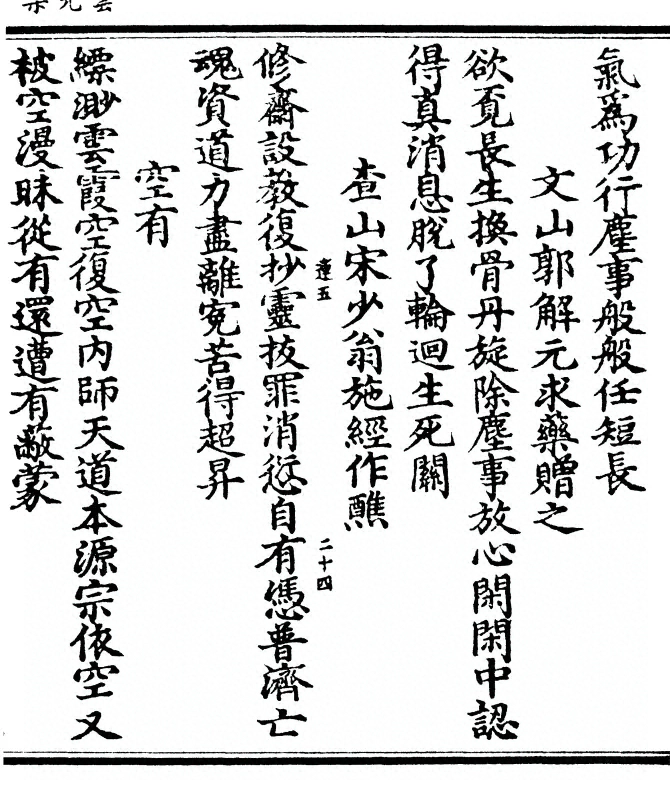 氣爲功行塵事般般任短長
文山郭解元求藥贈之
欲覔長生換骨丹旋除塵事放心閑閑中認
得真消息脫了輪迴生死關
查山宋少翁施經作醮
蓬五
二十四
修齋設教復抄靈拔罪消愆自有憑普濟亡
魂資道力盡離寃苦得超昇
空有
縹渺雲霞空復空內師天道本源宗依空又
被空漫昧從有還遭有蔽蒙